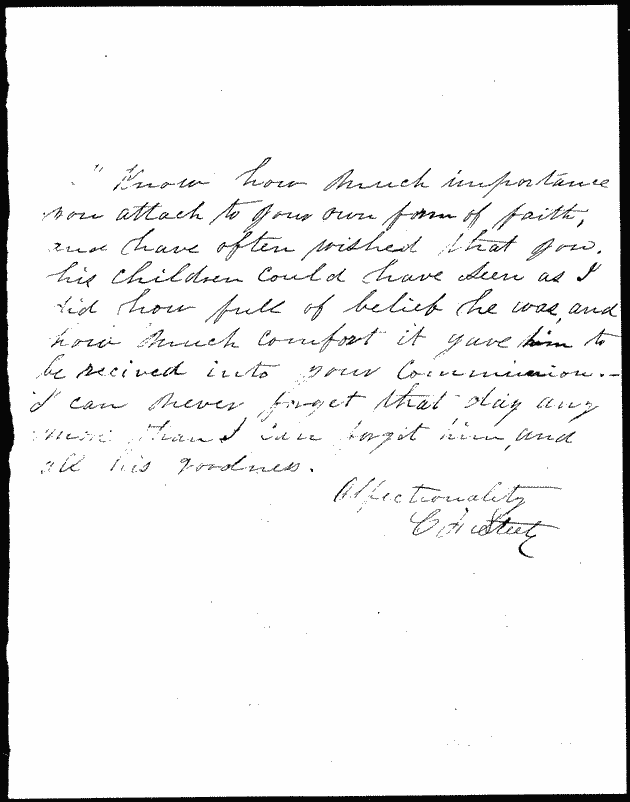 Know how much importance
you attach to your own form of faith,
and have often wished that you.
his children could have seen as I
did how full of belief he was, and
how much comfort it gave him to
be recived into your Communion.–
I can never forget that day any
more than I can forget him, and
all his goodness.
Affectionality